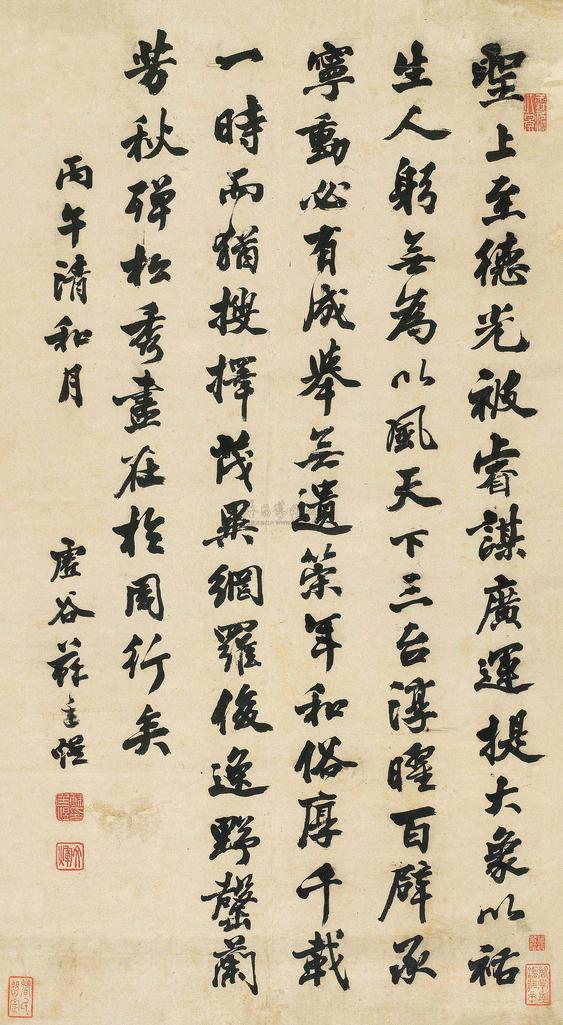 聖上至德光被睿謀廣運提大象以祐
生人躬無為以風天下三台淳曜百辟承
寧動必有成舉無遺策年和俗厚千載
一時而猶搜擇茂異網羅俊逸野罄蘭
芳秋殫松秀畫在於周行矣
丙午清和月
虛谷蘇